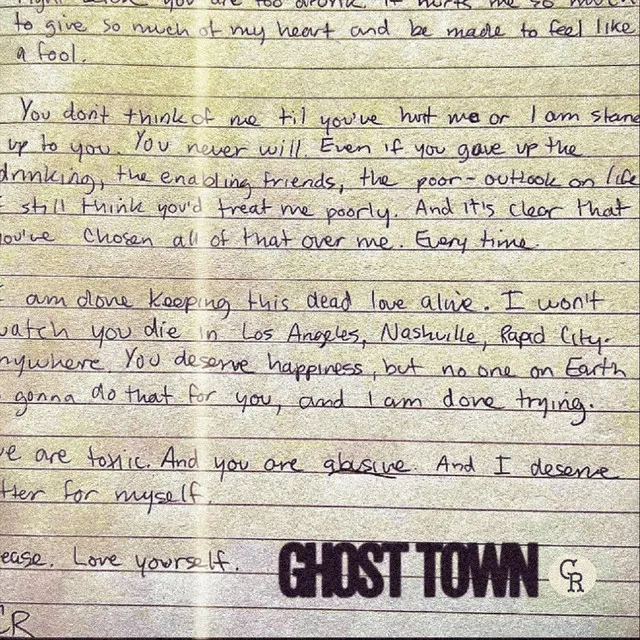 you are too drunk. It hurts me so much
to give so much of my heart and be made to feel like
a fool.
You don't think of me til you've hurt me or I am stand
up to you. You never will. Even if you gave up the
drinking, the enabling friends, the poor-outlook on life
I still think you'd treat me poorly. And it's clear that
you've chosen all of that over me. Every time.
I am done keeping this dead love alive. I won't
watch you die in Los Angeles, Nashville, Rapid City-
nywhere. You deserve happiness, but no one on Earth
gonna do that for you, and I am done trying.
e are toxic. And you are abusive. And I deserve
tter for myself.
ease. Love yourself.
GHOST TOWN
CR
CR